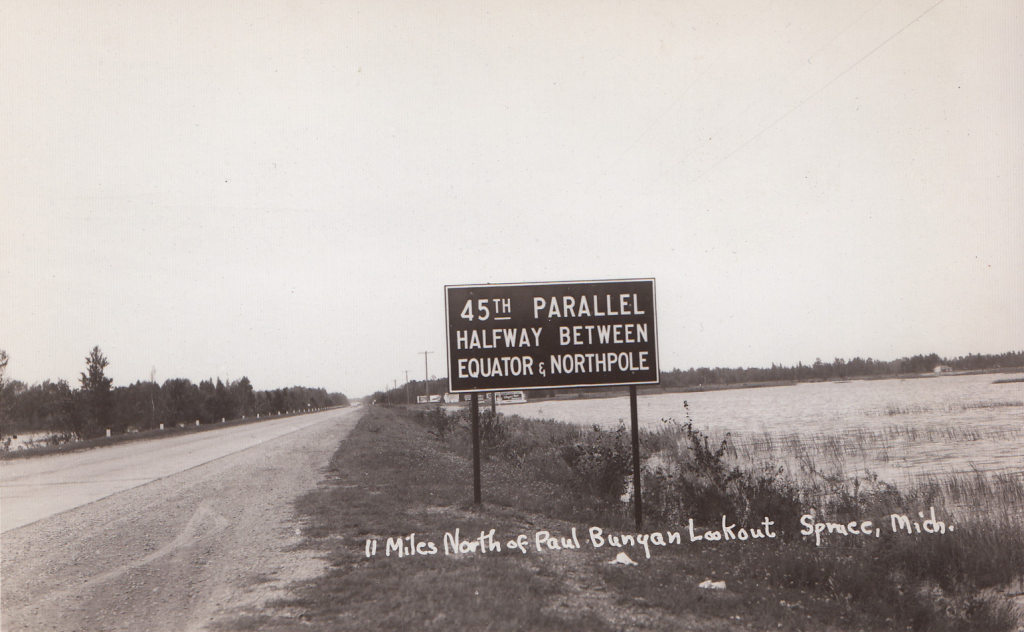 45TH PARALLEL
HALFWAY BETWEEN
EQUATOR & NORTHPOLE
11 Miles North of Paul Bunyan Lookout Spruce, Mich.